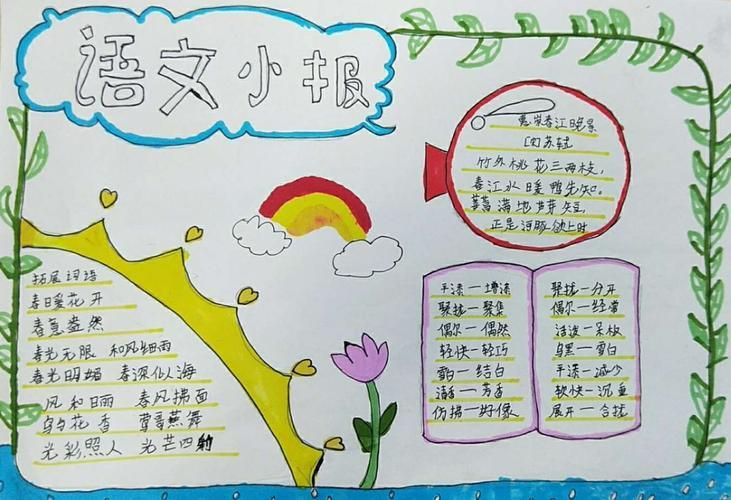 语文小报
惠崇春江晚景
[宋]苏轼
竹外桃花三两枝,
春江水暖鸭先知。
蒌蒿满地芦芽短,
正是河豚欲上时
拓展词语
春暖花开
春意盎然
春光无限 和风细雨
春光明媚 春深似海
风和日丽 春风拂面
鸟语花香 莺歌燕舞
光彩照人 光芒四射
平添一增添
聚拢一聚集
偶尔一偶然
轻快一轻巧
雪白一结白
清香一芳香
仿拂一好像
聚拢一分开
偶尔一经常
活泼一呆板
乌黑一雪白
平添一减少
轻快一沉重
展开一合拢